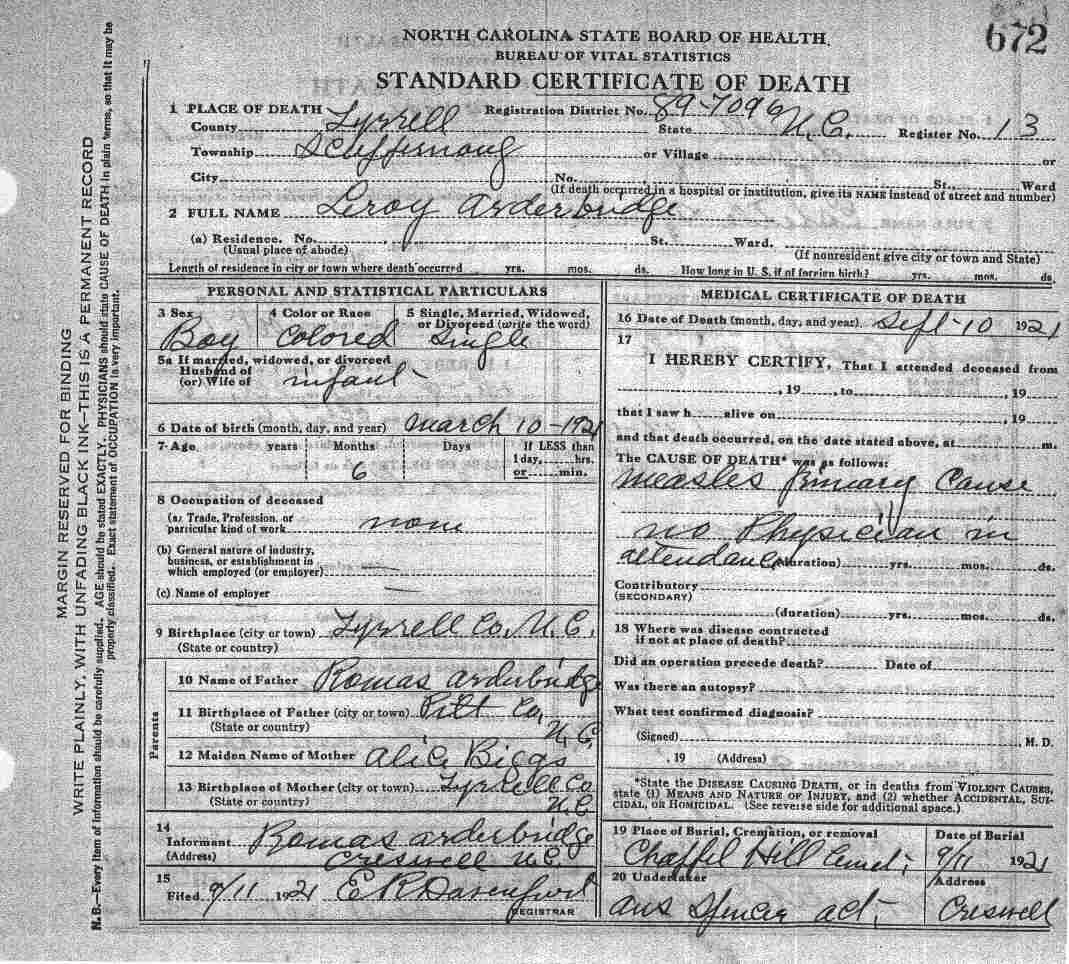 672
NORTH CAROLINA STATE BOARD OF HEALTH
BUREAU OF VITAL STATISTICS
STANDARD CERTIFICATE OF DEATH
1 PLACE OF DEATH Registration District No. 89-7096
County Tyrrell State N.C. Register No. 13
Township Scuppernong or Village or
City No. , St., Ward
(If death occurred in a hospital or institution, give its NAME instead of street and number)
2 FULL NAME Leroy Arderbridge
(a) Residence. No. St., Ward.
(Usual place of abode) (If nonresident give city or town and State)
Length of residence in city or town where death occurred yrs. mos. ds. How long in U. S. if of foreign birth? yrs. mos. ds.
PERSONAL AND STATISTICAL PARTICULARS
3 Sex 4 Color or Race 5 Single, Married, Widowed,
or Divorced (write the word)
Boy Colored Single
5a If married, widowed, or divorced
Husband of
(or) Wife of infant
6 Date of birth (month, day, and year) March 10-1921
7 Age years Months Days If LESS than
1 day, hrs.
6 or min.
8 Occupation of deceased
(a) Trade, Profession, or
particular kind of work none
(b) General nature of industry,
business, or establishment in
which employed (or employer) —
(c) Name of employer —
9 Birthplace (city or town) Tyrrell Co, N.C.
(State or country)
Parents
10 Name of Father Romas Arderbridge
11 Birthplace of Father (city or town) Pitt Co,
(State or country) N.C.
12 Maiden Name of Mother Alic Biggs
13 Birthplace of Mother (city or town) Tyrrell Co
(State or country) N.C.
14
Informant Romas Arderbridge
(Address) Creswell N.C.
15
Filed 9/11 1921 E R Davenport
REGISTRAR
MEDICAL CERTIFICATE OF DEATH
16 Date of Death (month, day, and year) Sept-10 1921
17
I HEREBY CERTIFY, That I attended deceased from
, 19 , to , 19
that I saw h alive on , 19
and that death occurred, on the date stated above, at m.
The CAUSE OF DEATH* was as follows:
Measles Primary Cause
no Physician in
attendance (duration) yrs. mos. ds.
Contributory
(SECONDARY)
(duration) yrs. mos. ds.
18 Where was disease contracted
if not at place of death?
Did an operation precede death? Date of
Was there an autopsy?
What test confirmed diagnosis?
(Signed) , M. D.
, 19 (Address)
*State the DISEASE CAUSING DEATH, or in deaths from VIOLENT CAUSES,
state (1) MEANS AND NATURE OF INJURY, and (2) whether ACCIDENTAL, SUI-
CIDAL, OR HOMICIDAL. (See reverse side for additional space.)
19 Place of Burial, Cremation, or removal Date of Burial
Chappel Hill 9/11 1921
20 Undertaker Address
Spencer act, Creswell
MARGIN RESERVED FOR BINDING
WRITE PLAINLY, WITH UNFADING BLACK INK—THIS IS A PERMANENT RECORD
N. B.—Every item of information should be carefully supplied. AGE should be stated EXACTLY. PHYSICIANS should state CAUSE OF DEATH in plain terms, so that it may be
properly classified. Exact statement of OCCUPATION is very important.